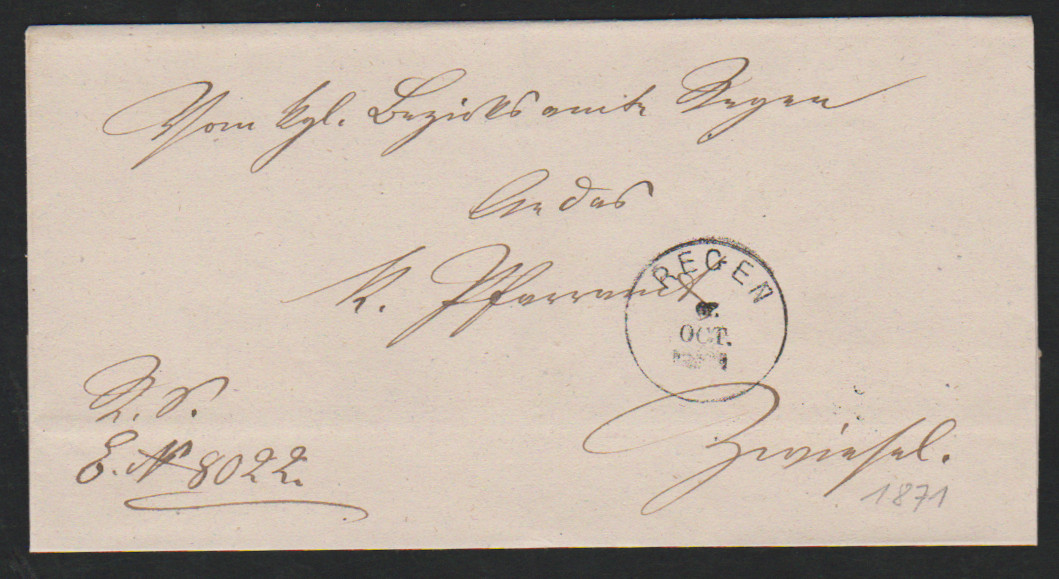 Vom kgl. Bezirksamte Regen
An das
k. Pfarramt
REGEN
OCT.
R. S.
E. N 8022.
Zwiesel.
1871